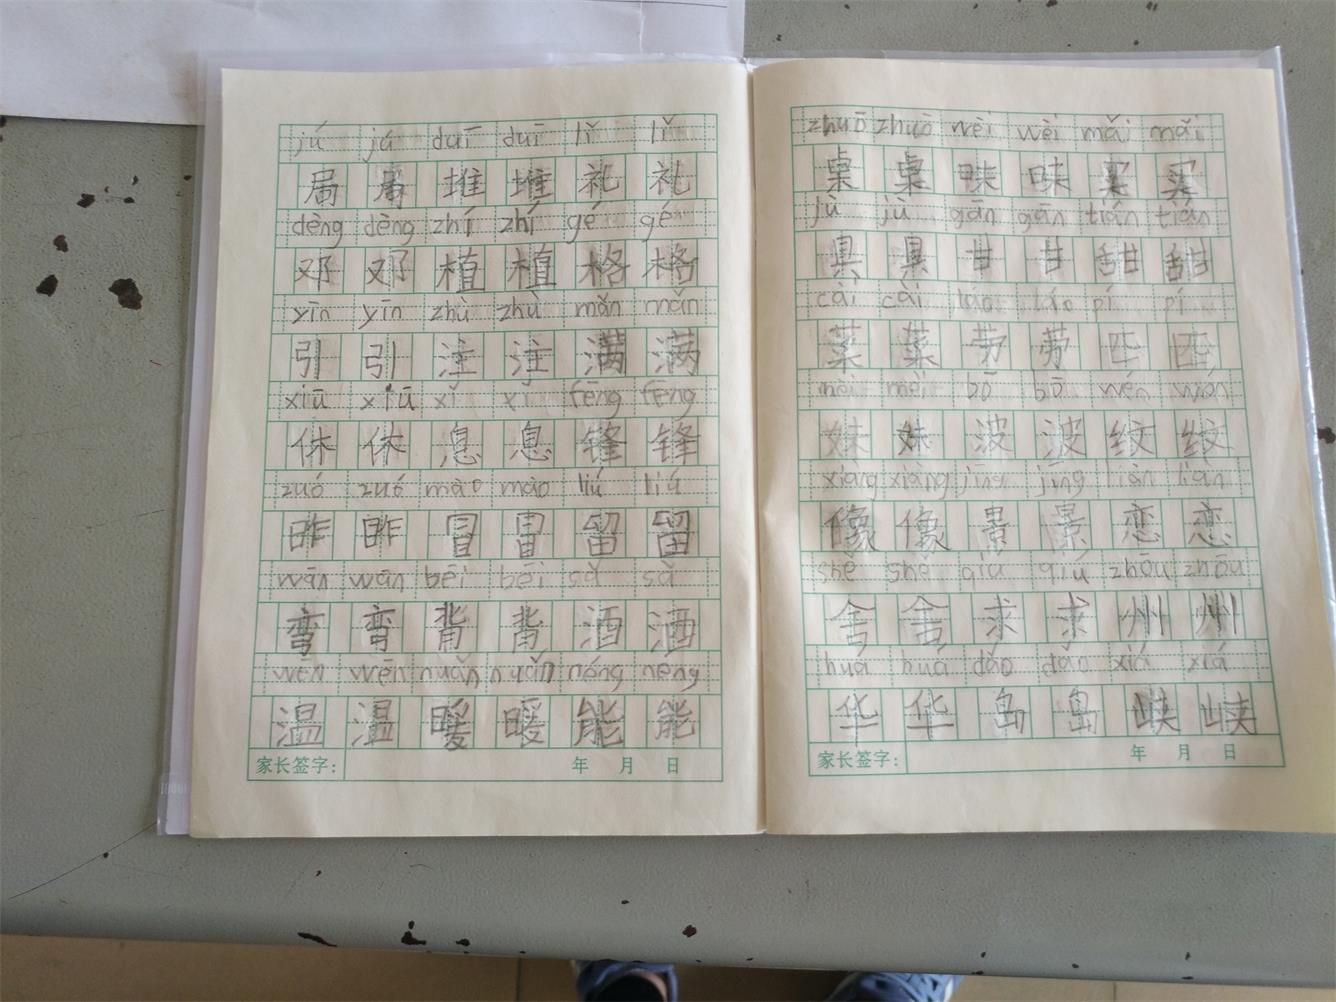 jú jú duī duī lǐ lǐ
局 局 堆 堆 礼 礼
dèng dèng zhí zhí gé gé
邓 邓 植 植 格 格
yǐn yǐn zhù zhù mǎn mǎn
引 引 注 注 满 满
xiū xiū xī xī fēng fēng
休 休 息 息 锋 锋
zuó zuó mào mào liú liú
昨 昨 冒 冒 留 留
wān wān bēi bēi sǎ sǎ
弯 弯 背 背 洒 洒
wēn wēn nuǎn nuǎn néng néng
温 温 暖 暖 能 能
家长签字： 年 月 日
zhuō zhuō wèi wèi mǎi mǎi
桌 桌 味 味 买 买
jù jù gān gān tián tián
具 具 甘 甘 甜 甜
cài cài láo láo pí pí
菜 菜 劳 劳 匹 匹
mèi mèi bō bō wén wén
妹 妹 波 波 纹 纹
xiàng xiàng jǐng jǐng liàn liàn
像 像 景 景 恋 恋
shě shě qiú qiú zhōu zhōu
舍 舍 求 求 州 州
huá huá dǎo dǎo xiá xiá
华 华 岛 岛 峡 峡
家长签字： 年 月 日